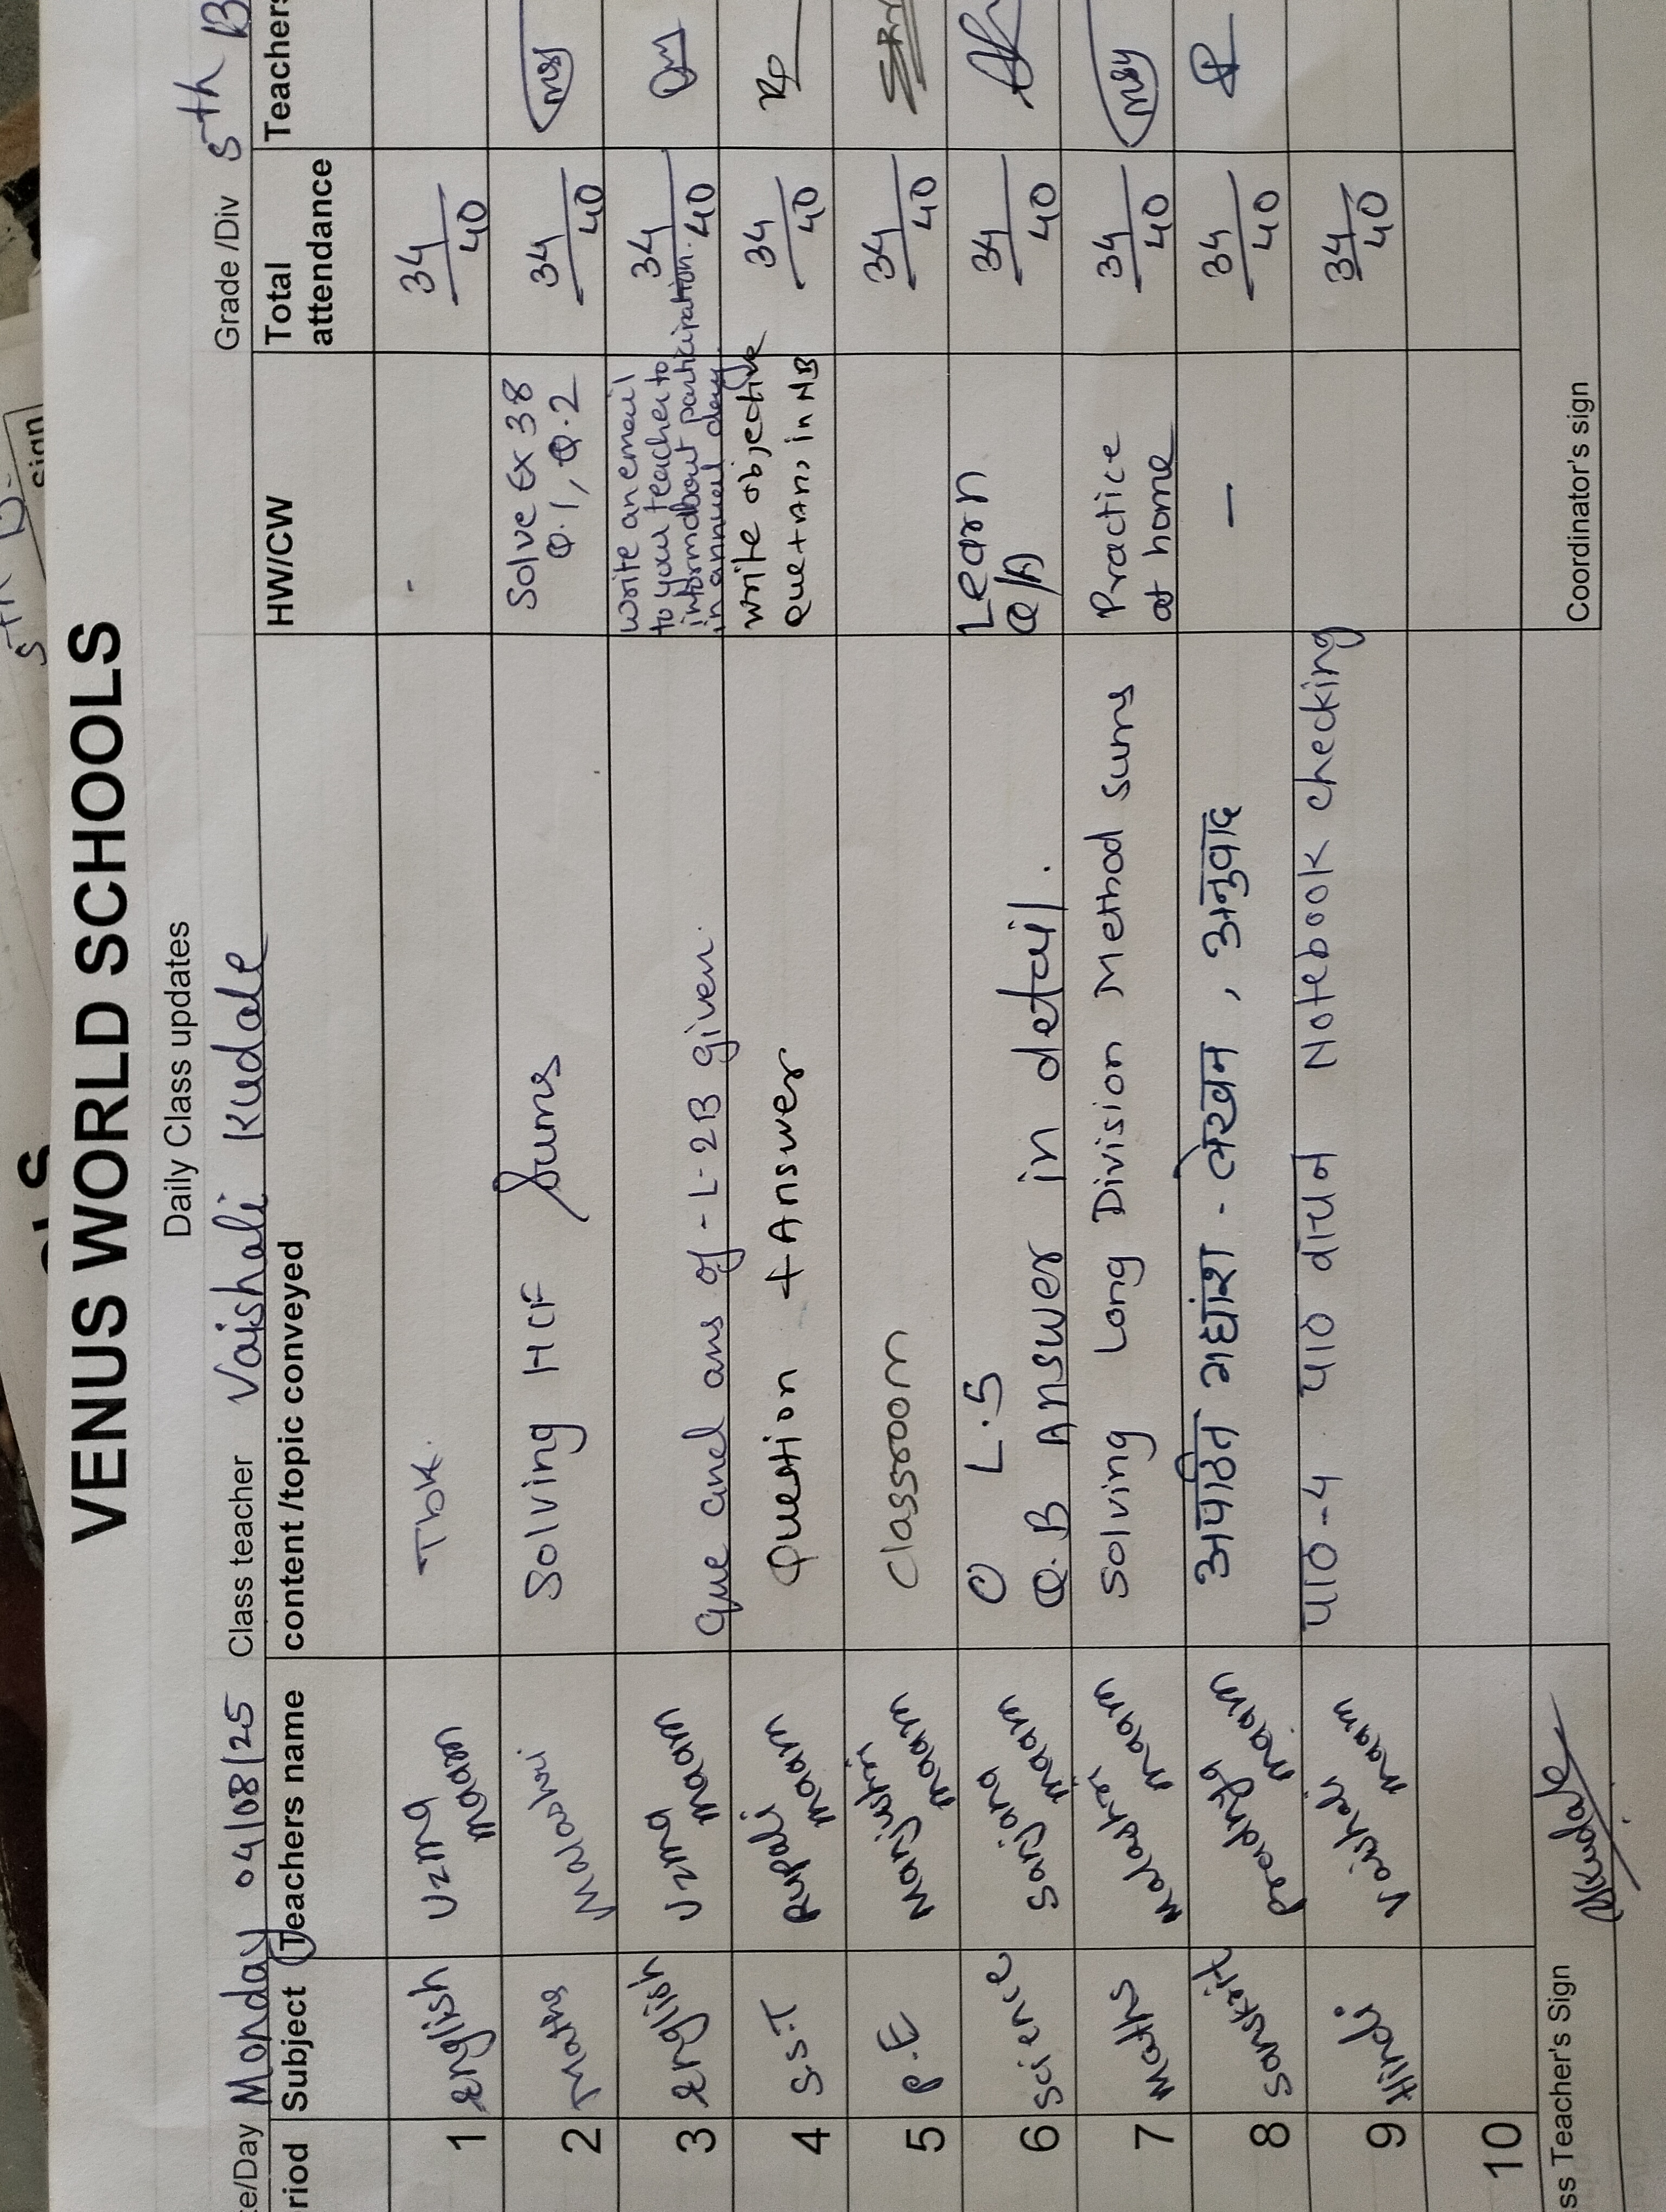 VENUS WORLD SCHOOLS
Daily Class updates
e/Day Monday 04/08/25 Class teacher Vaishali Kudale Grade /Div 5th B
riod Subject Teachers name content /topic conveyed HW/CW Total attendance Teachers
1 english Uzma maam Tbk. - 34/40
2 Maths Malashri Solving HCF Sums Solve Ex 38 Q.1, Q.2 34/40
3 english Uzma maam Que and ans of - L-2B given. Write an email to your teacher to inform about participation in annual day 34/40
4 S.S.T Rupali maam Question + Answer write objective Que + Ans in NB 34/40
5 P.E Manjushri maam Classroom 34/40
6 science Sanjana maam O L.5 Q.B Answer in detail. Learn Q/A 34/40
7 Maths Malashri maam Solving Long Division Method Sums Practice at home 34/40
8 sanskrit Pradnya maam अपठित गद्यांश - लेखन , अनुवाद - 34/40
9 Hindi Vaishali maam पाठ-4 पाठ वाचन Notebook checking 34/40
10
ss Teacher's Sign VKudale Coordinator's sign